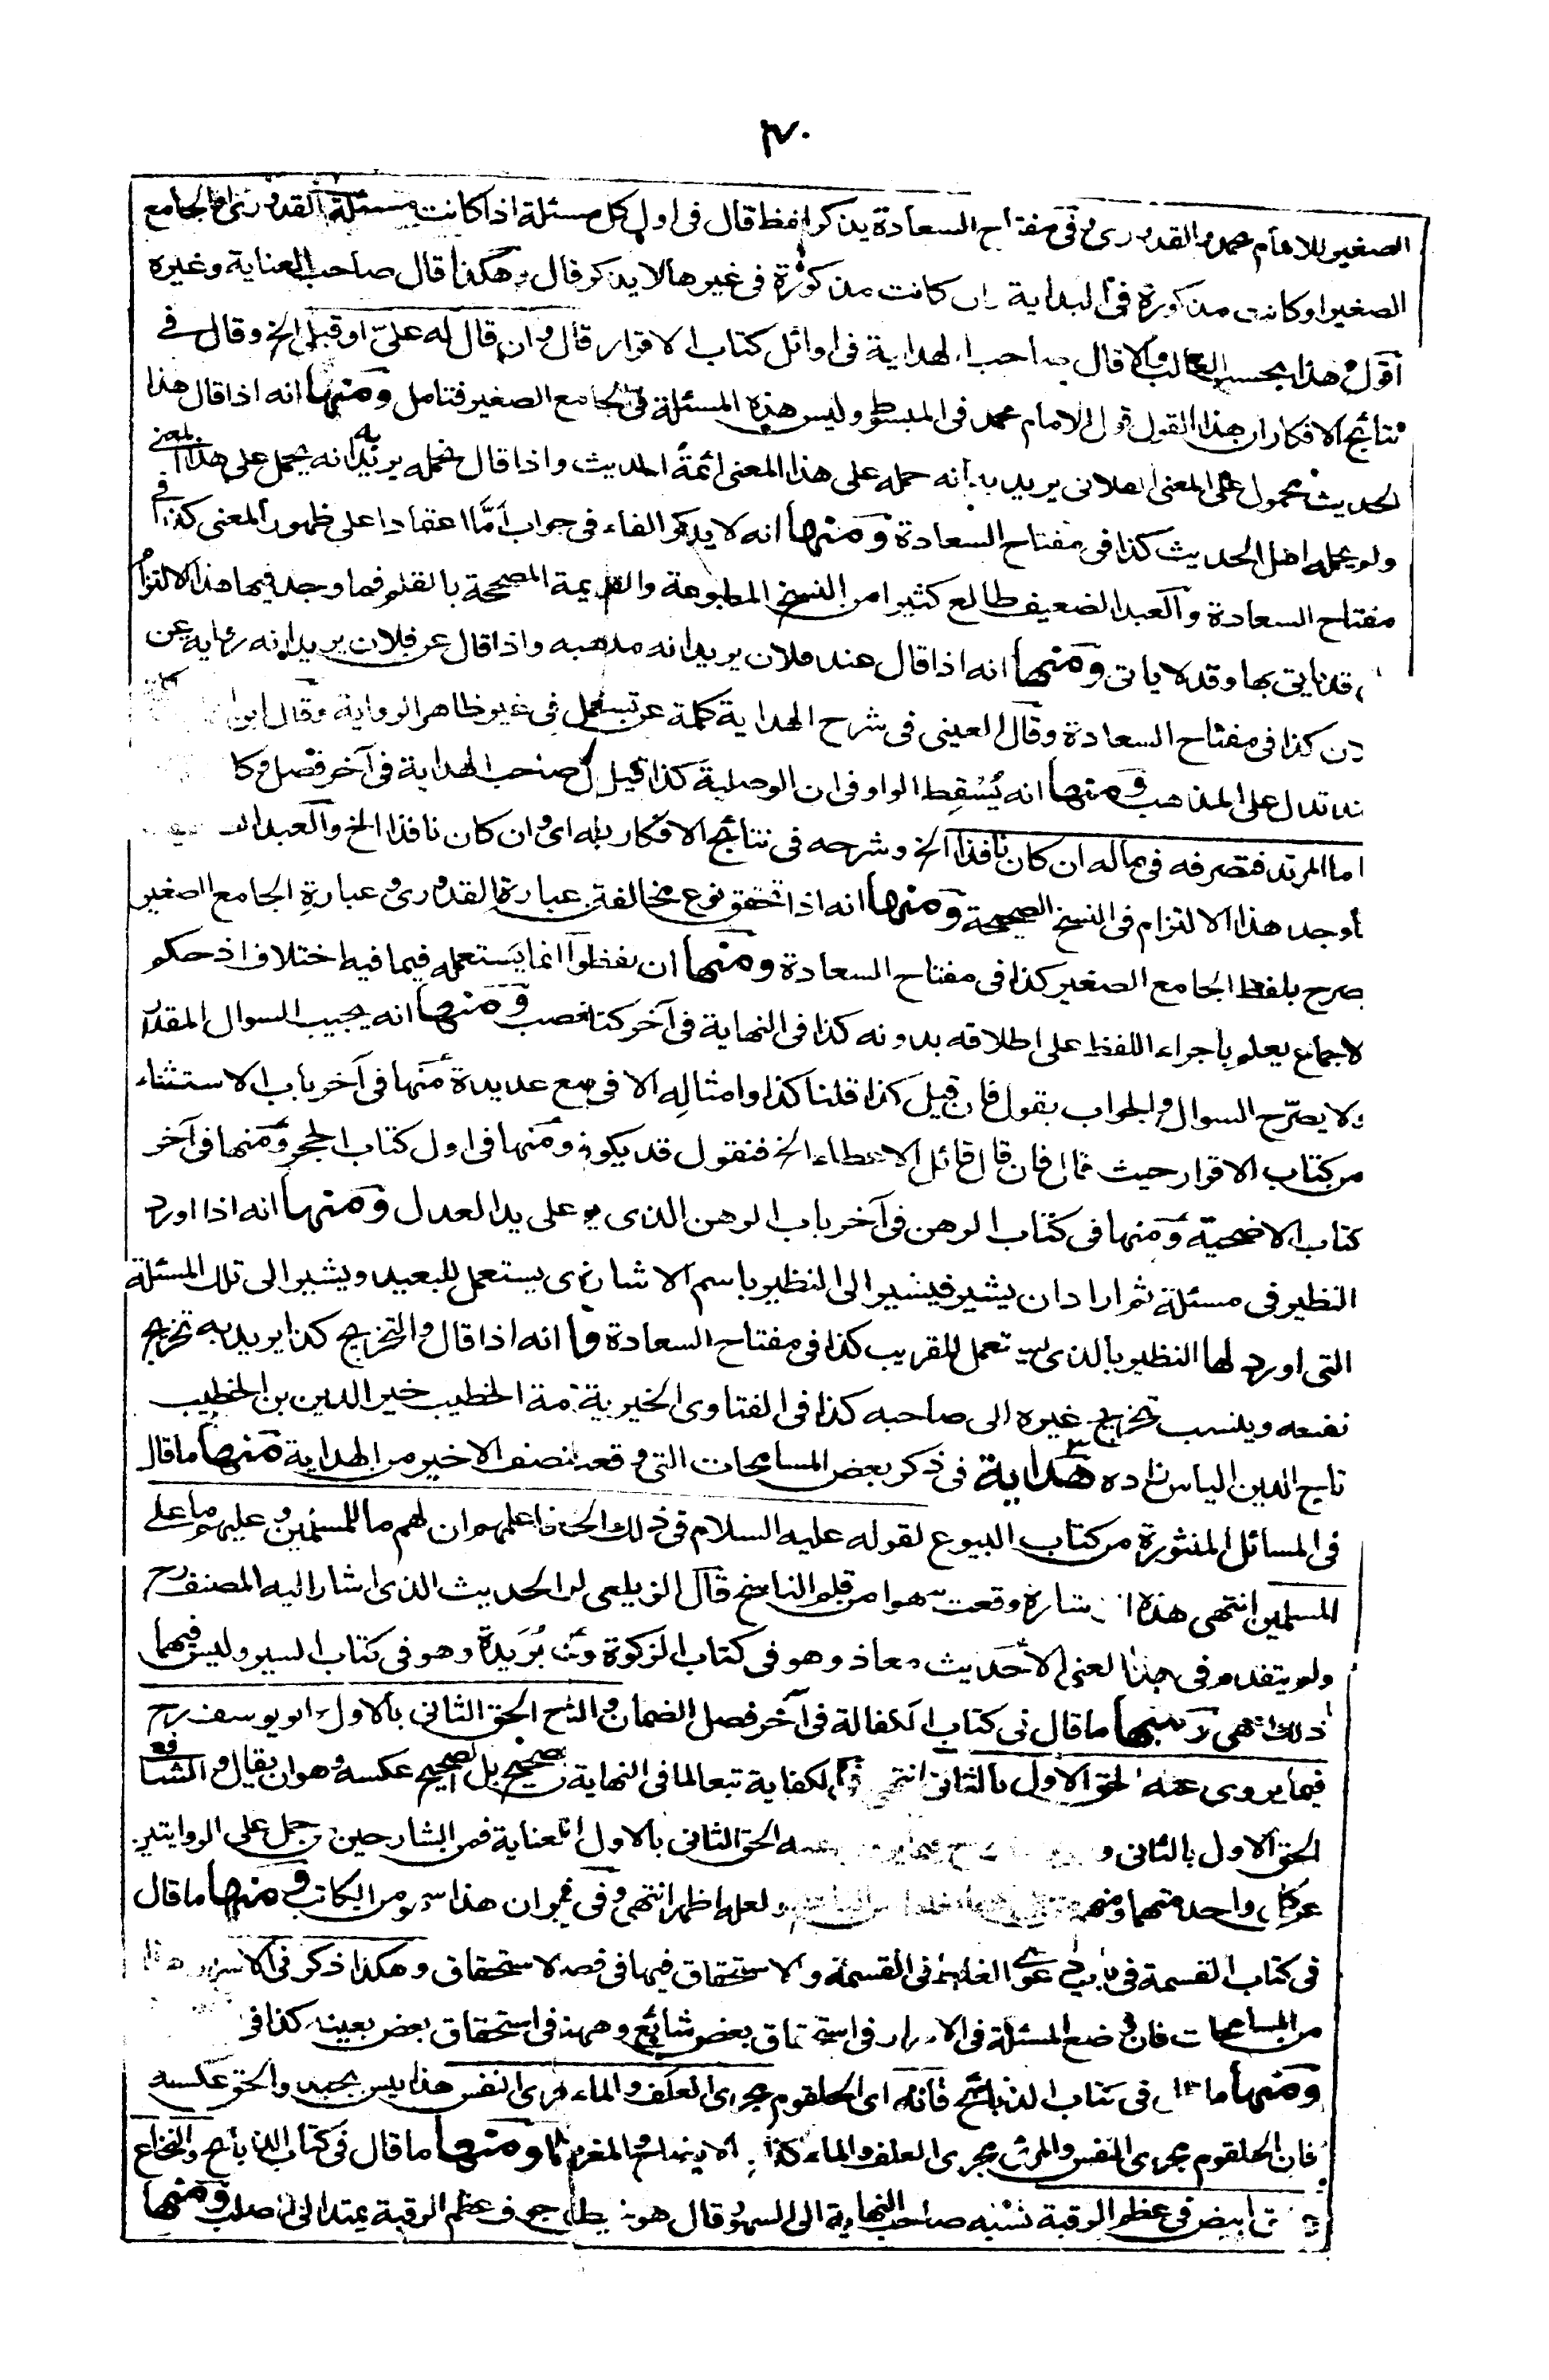 الصغير للامام محمد والقدوري وفي مفتاح السعادة يذكر لفظ قال في اول كل مسئلة اذا كانت مسئلة القدوري او الجامع
الصغير او كانت مذكورة في البداية وان كانت مذكورة في غيرها لا يذكر قال وهكذا قال صاحب العناية وغيره
اقول وهذا بحسب الغالب والا قال صاحب الهداية في اوائل كتاب الاقرار قال وان قال له عليّ او قبلي الخ وقال في
نتائج الافكار ان هذا القول قول الامام محمد في المبسوط وليس هذه المسئلة في الجامع الصغير فتامل ومنها انه اذا قال هذا
الحديث محمول على المعنى الفلاني يريد به انه حمله على هذا المعنى ائمة الحديث واذا قال نحمله يريد به انه يحمل على هذا المعنى
ولم يحمله اهل الحديث كذا في مفتاح السعادة ومنها انه لا يذكر الفاء في جواب أمّا اعتمادا على ظهور المعنى كذا في
مفتاح السعادة والعبد الضعيف طالع كثيرا من النسخ المطبوعة والقديمة المصححة بالقلم فما وجد فيها هذا الالتزام
قد ياتي بها وقد لا ياتي ومنها انه اذا قال عند فلان يريد انه مذهبه واذا قال عن فلان يريد انه رواية عن
كذا في مفتاح السعادة وقال العيني في شرح الهداية كلمة عن تستعمل في غير ظاهر الرواية وقال ابن
تدل على المذهب ومنها انه يُسْقِط الواو في ان الوصلية كذا قيل قال صاحب الهداية في آخر فصل
اما المرتد فتصرفه في ماله ان كان نافذا الخ وشرحه في نتائج الافكار بقوله اي وان كان نافذا الخ والعبد
ما وجد هذا الالتزام في النسخ الصحيحة ومنها انه اذا تحقق نوع مخالفة بين عبارة القدوري وعبارة الجامع الصغير
صرح بلفظ الجامع الصغير كذا في مفتاح السعادة ومنها ان لفظ انما يستعمله فيما فيه اختلاف اذ حكم
الاجماع يعلم باجراء اللفظ على اطلاقه بدونه كذا في النهاية في آخر كتاب الغصب ومنها انه يجيب السوال المقدر
ولا يصرّح السوال والجواب بقول فان قيل كذا قلنا كذا وامثاله الا في مواضع عديدة منها في آخر باب الاستثناء
من كتاب الاقرار حيث قال فان قال قائل الاعطاء الخ فنقول قد يكون ومنها في اول كتاب الحجر ومنها في آخر
كتاب الاضحية ومنها في كتاب الرهن في آخر باب الرهن الذي يوضع على يد العدل ومنها انه اذا اورد
النظير في مسئلة ثم اراد ان يشير فيشير الى النظير باسم الاشارة الذي يستعمل للبعيد ويشير الى تلك المسئلة
التي اورد لها النظير بالذي يستعمل للقريب كذا في مفتاح السعادة ومنها انه اذا قال والتخريج كذا يريد به تخريج
نفسه وينسب تخريج غيره الى صاحبه كذا في الفتاوى الخيرية الخطيب خير الدين بن الخطيب
تاج الدين الياس زاده هداية في ذكر بعض المسامحات التي وقعت في النصف الاخير من الهداية منها ما قال
في المسائل المنثورة من كتاب البيوع لقوله عليه السلام في ذلك الحديث فاعلمهم ان لهم ما للمسلمين وعليهم ما على
المسلمين انتهى هذه الاشارة وقعت سهوا من قلم الناسخ قال الزيلعي لم الحديث الذي اشار اليه المصنف رح
ولم يتقدم في هذا المعنى الا حديث معاذ وهو في كتاب الزكوة وحديث بُرَيدة وهو في كتاب السير وليس فيهما
ذلك انتهى ومنها ما قال في كتاب الكفالة في آخر فصل الضمان والشح الحق الثاني بالاول وابو يوسف رح
فيما يروى عنه الحق الاول بالثاني انتهى وفي الكفاية تبعا لما في النهاية ليس بصحيح بل الصحيح عكسه وهو ان يقال والشافعي
الحق الاول بالثاني و الحق الثاني بالاول العناية فمن الشارحين من حمل على الروايتين
عن كل واحد منهما ومنهم ولعله اظهر انتهى وفي غيره ان هذا سهو من الكاتب ومنها ما قال
في كتاب القسمة في باب دعوى الغلط في القسمة والاستحقاق فيها في فصل الاستحقاق وهكذا ذكر في الاسرار هذا
من المسامحات فان وضع المسئلة في الاسرار في استحقاق بعض شائع وههنا في استحقاق بعض بعينه كذا في
ومنها ما قال في كتاب الذبائح فانه اي الحلقوم مجرى العلف والماء والمرئ مجرى النفس هذا ليس بجيد والحق عكسه
فان الحلقوم مجرى النفس والمرئ مجرى العلف والماء كذا في الايضاح والمغرب ومنها ما قال في كتاب الذبائح والنخاع
عرق ابيض في عظم الرقبة نسبه صاحب النهاية الى السهو وقال هو خيط في جوف عظم الرقبة يمتد الى الصلب ومنها